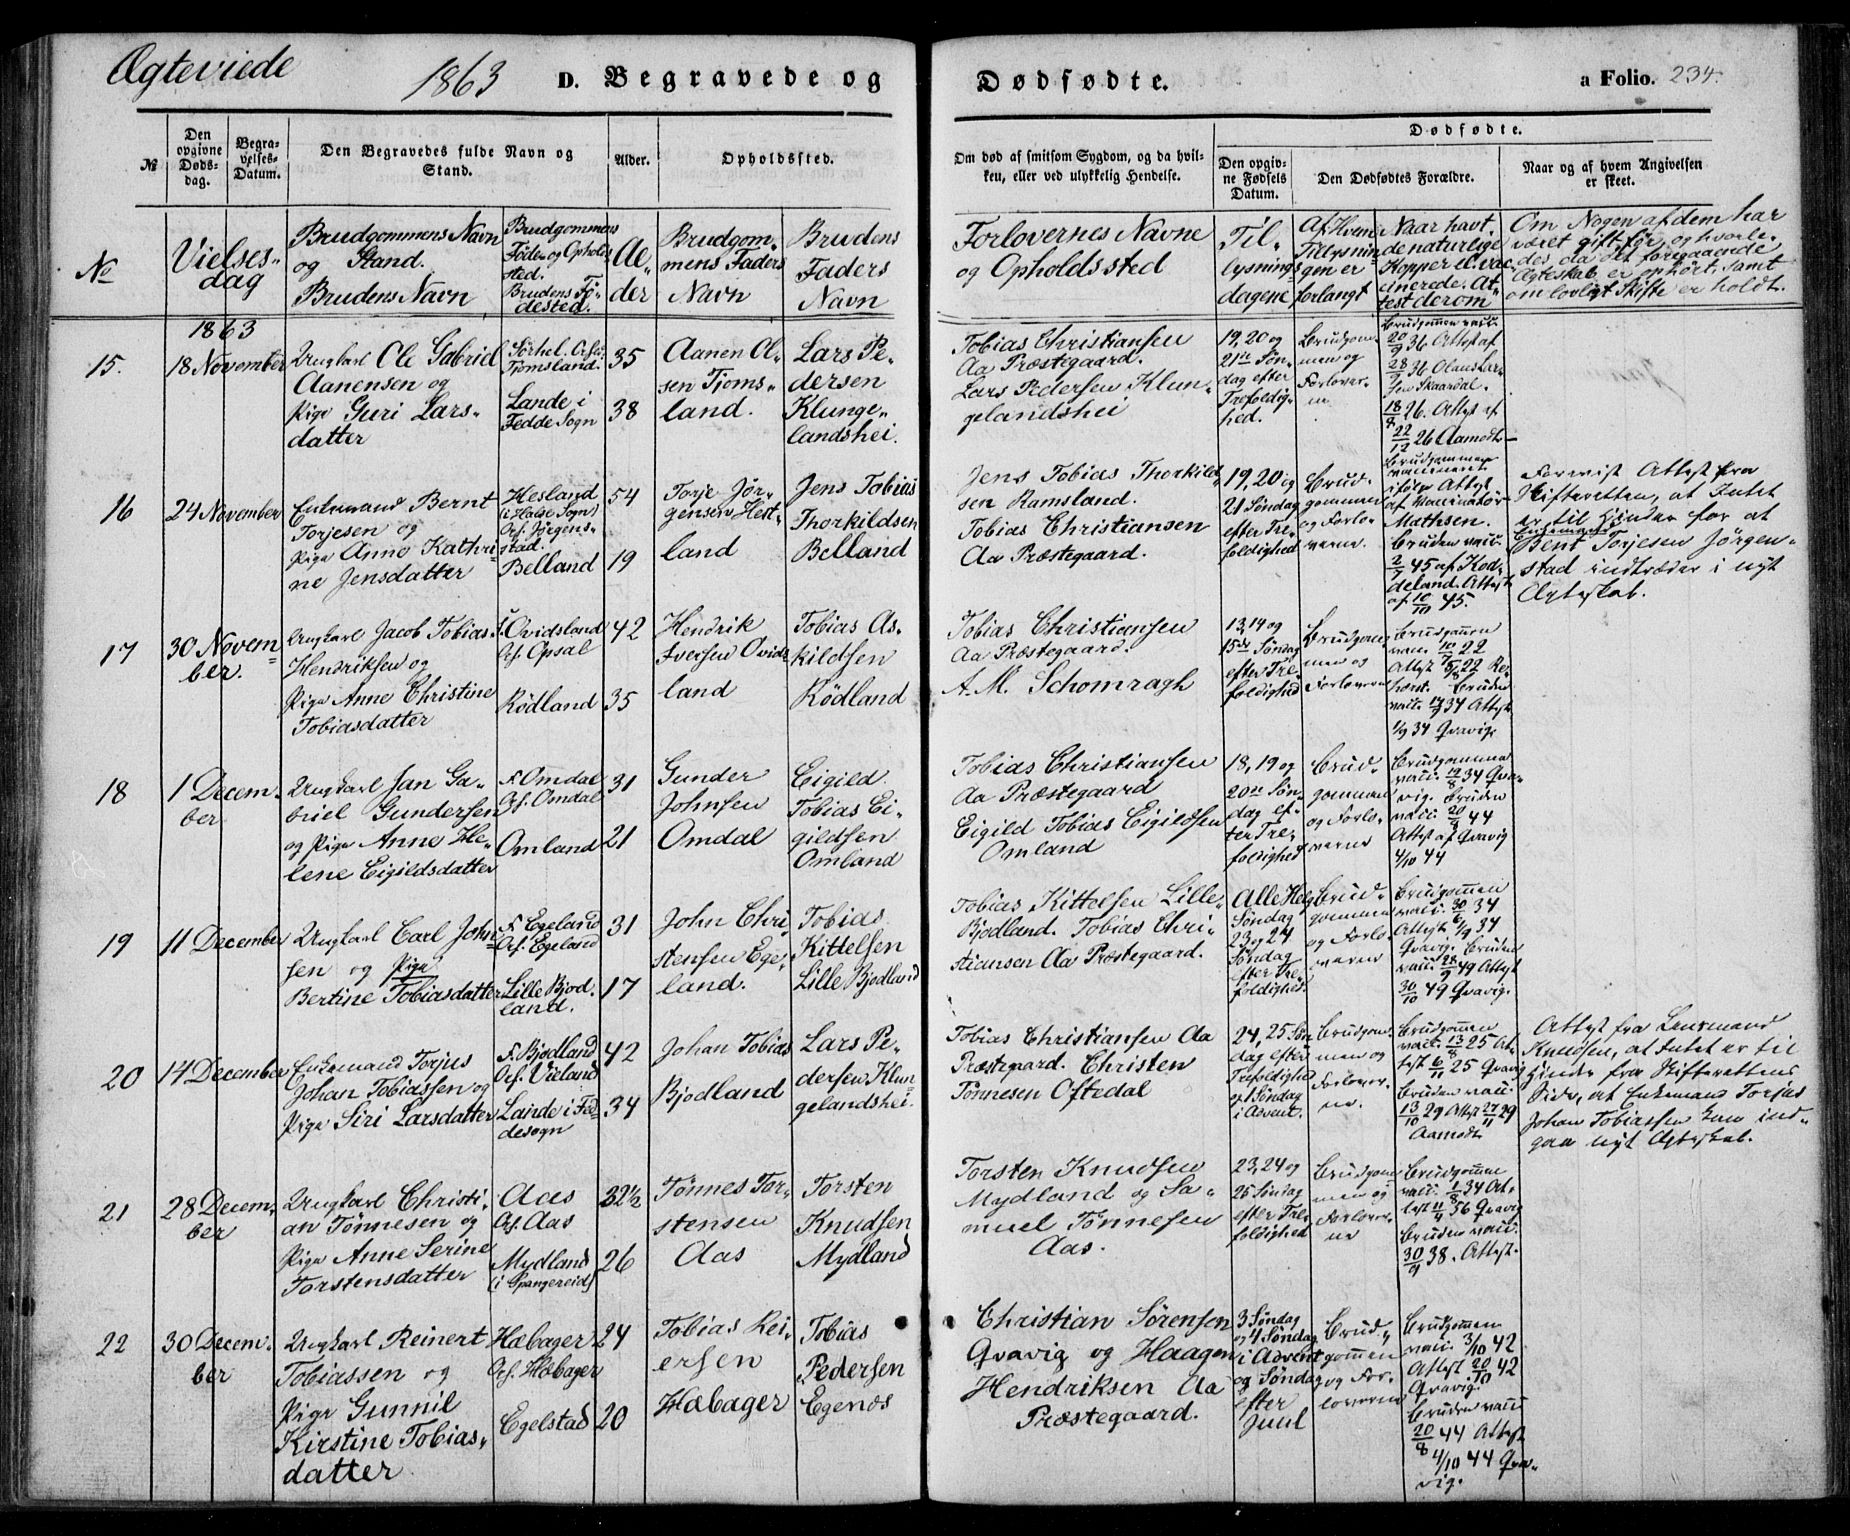 Ægteviede
1863 D. Begravede og Dødfødte. a Folio. 234.
№
Den opgivne Døds-dag.
Begra-velses-Datum.
Den Begravedes fulde Navn og Stand.
Alder.
Opholdssted.
Om død af smitsom Sygdom, og da hvil-
ken, eller ved ulykkelig Hendelse.
Dødfødte.
Den opgiv-
ne Fødsels
Datum.
Den Dødfødtes Forældre.
Naar og af hvem Angivelsen
er skeet.
No
Vielses-
dag
Brudgommens Navn
og Stand.
Brudens Navn
Brudgommens
Føde- og Opholds
sted.
Brudens Fø-
dested.
Al-
der
Brudgom-
mens Faders
Navn
Brudens
Faders
Navn
Forlovernes Navne
og Opholdssted
Til-
lysnings
dagene
Af Hvem
Tillysnin-
gen er
forlangt
Naar havt
de naturlige
Kopper el. vac-
cinerede. At-
test derom
Om Nogen af dem har
været gift før, og hvorle-
des da det foregaaende
Ægteskab er ophørt. Samt
om lovligt Skifte er holdt.
1863
15.
18 November
Ungkarl Ole Gabriel
Aanensen og
Pige Guri Lars-
datter
Tjomsland.
Lande i
Fedde Sogn
35
38
Aanen Ol-
sen Tjoms-
land.
Lars Pe-
dersen
Klunge-
landshei.
Tobias Christiansen
Aa Præstegaard.
Lars Pedersen Klun-
gelandshei
19, 20 og
21de Søn-
dag efter
Trefoldig-
hed.
Brudgom-
men og
Forlover-
ne
Brudgommen vacc.
20/9 36 Attest af
28/9 36 Olaus Lar-
sen Skaardal.
18/8 26. Attest af
22/12 26 Aamodt
16
24 November
Enkemand Bernt
Torjesen og
Pige Anne Kathri-
ne Jensdatter
Hesland
(i Halse Sogn)
Of. Jørgens-
stad.
Belland
54
19
Torje Jør-
gensen Hest-
land
Jens Tobias
Thorkildsen
Belland
Jens Tobias Thorkild
sen Ramsland.
Tobias Christiansen
Aa Præstegaard.
19, 20 og
21 Søndag
efter Tre-
foldighed
Brud-
gommen
og Forlo-
verne.
Brudgommen
vaccineret
ifølge Attest
af Vaccinatør
Mathsen.
Bruden vacc.
2/7 45 af Kod-
deland. Attest
af 10/10 45.
Forevist Attest fra
Skifteretten, at Intet
er til Hinder for at
Enkemand
Bent Torjesen Jørgen-
stad indtræder i nyt
Ægteskab.
17
30 Novem-
ber.
Ungkarl Jacob Tobias
Hendriksen og
Pige Anne Christine
Tobiasdatter
F. Ovidsland
Of. Opsal
Rødland
42
35
Hendrik
Iversen Ovids
land
Tobias As-
kildsen
Rødland
Tobias Christiansen
Aa Præstegaard.
A. M. Schomragh
13, 14 og
15de Søndag
efter Tre-
foldighed
Brudgom-
men og
Forloverne
Brudgommen
vacc. 10/7 22
Attest 5/8 22
Bruden
vacc. 14/9 34 Attest
1/9 34 Qvavig.
18
1 Decem-
ber
Ungkarl Jan Ga-
briel Gundersen
og Pige Anne He-
lene Eigildsdatter
F. Omdal
Of. Omdal
Omland
31
21
Gunder
Johnsen
Omdal
Eigild
Tobias Ei-
gildsen
Omland
Tobias Christiansen
Aa Præstegaard
Eigild Tobias Eigildsen
Omland
18, 19 og
20de Søn-
dag ef-
ter Tre-
foldighed
Brud-
gommen
og Forlo-
verne
Brudgommen
vacc. 19/8 34 Qva-
vig. Bruden
vacc. 20/9 44
Attest af Qvavig
4/10 44
19
11 December
Ungkarl Carl John-
sen og Pige
Bertine Tobiasdatter
F. Egeland
Of. Egeland
Lille Bjod-
land.
31
17
John Chri-
stensen Ege-
land.
Tobias
Kittelsen
Lille Bjodland
Tobias Kittelsen Lille-
Bjodland. Tobias Chri-
stiansen Aa Præstegaard.
Alle Helg
Søndag
23 og 24
Søndag
efter Tre-
foldighed.
Brud-
gommen
og Forlo-
verne
Brudgommen
vacc. 30/6 34
Attest 1/9 34
Qvavig. Bruden
vacc. 28/9 49 Attest
30/10 49 Qvavig.
20
14 December
Enkemand Torjus
Johan Tobiassen og
Pige Siri Larsdatter
F. Bjodland
Of. Vieland
Lande i Fed-
desogn
42
34
Johan Tobias
Bjodland
Lars Pe-
dersen Klun-
gelandshei.
Tobias Christiansen Aa
Præstegaard. Christen
Tønnesen Oftedal
24, 25 Søn-
dag efter
Trefoldighed
og 1 Søndag
i Advent.
Brudgom-
men og
Forlover-
ne.
Brudgommen
vacc. 13/8 25 At-
test 6/11 25 Qvavig
Bruden vacc.
13/10 29 Attest 27/11 29
Aamodt
Attest fra Lensmand
Knudsen, at Intet er til
Hinder fra Skifterettens
Side, at Enkemand Torjus
Johan Tobiassen kan ind-
gaa nyt Ægteskab.
21
28 Decem-
ber
Ungkarl Christi-
an Tønnesen og
Pige Anne Serine
Torstensdatter
Aas
Of. Aas
Mydland
(i Spangereid)
32½
26
Tønnes Tor-
stensen
Aas
Torsten
Knudsen
Mydland
Torsten Knudsen
Mydland og Sa-
muel Tønnesen
Aas.
23, 24 og
25 Søndag
efter Tre-
foldighed
Brudgom
men og
Forlover-
ne
Brudgommen
vacc. 1/8 34 At-
test 11/4 56 Qvavig
Bruden vacc.
30/9 38. Attest.
22
30 Decem-
ber
Ungkarl Reinert
Tobiassen og
Pige Gunnil
Kirstine Tobias-
datter
Hæbager
Of. Hæbager
Egelstad
24
20
Tobias Rei-
ersen
Hæbager
Tobias
Pedersen
Egenæs
Christian Sørensen
Qvavig og Haagen
Hendriksen Aa
Præstegaard.
3 Søndag
og 4 Søndag
i Advent
og Søndag
efter
Juul
Brud-
gommen
og For-
loverne
Brudgommen
vacc. 3/10 42
Attest 20/10 42
Qvavig.
Bruden vacc
20/8 44 Attest
4/10 44 Qva-
vig.